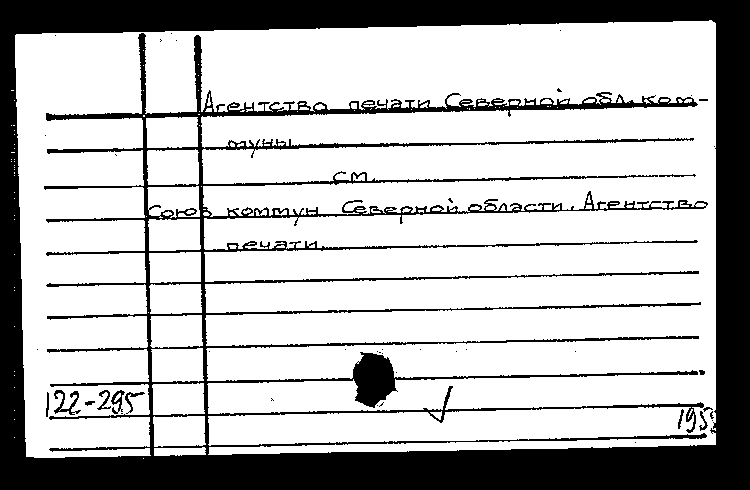 Агентство печати Северной обл. ком-
муны
см.
Союз коммун Северной области. Агентство
печати.
122-295